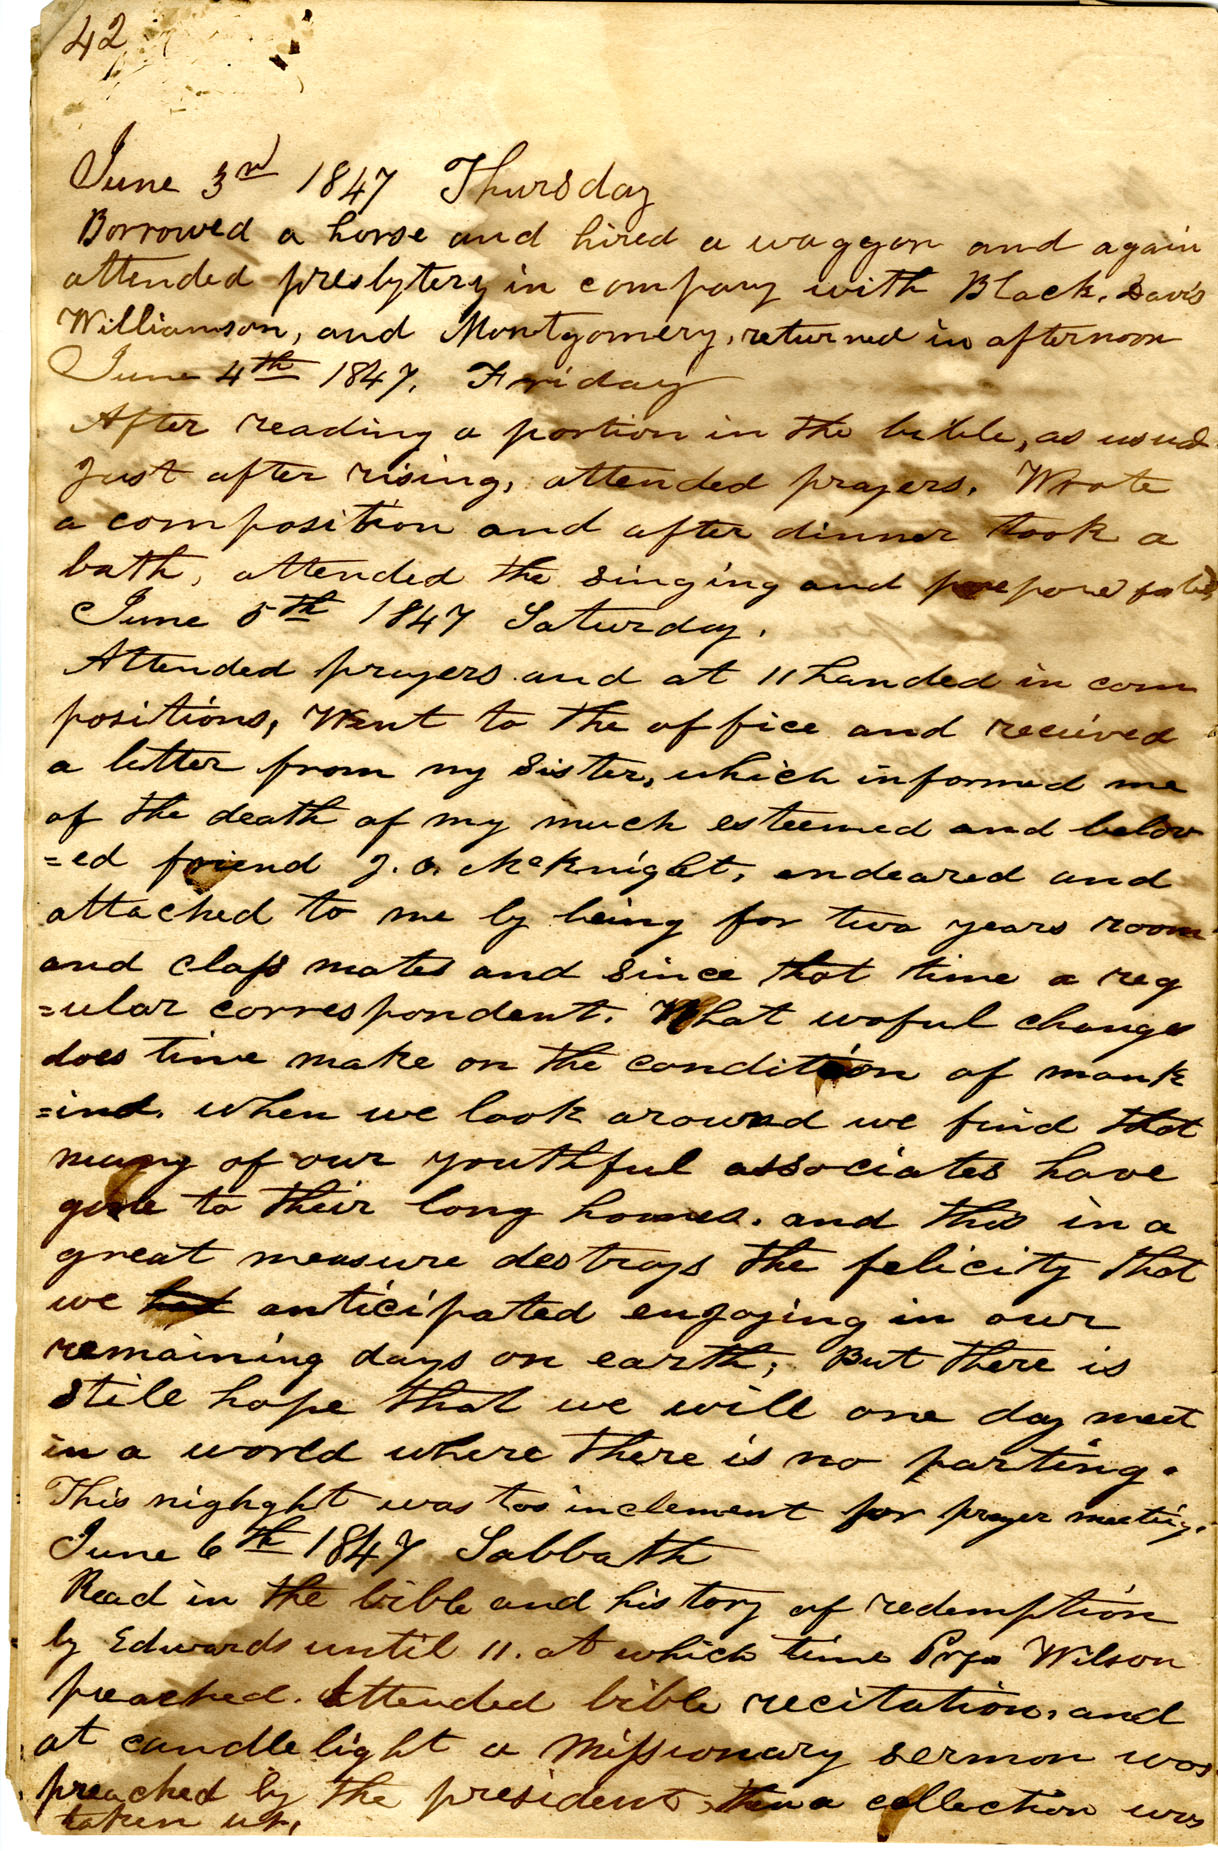 42
June 3rd 1847 Thursday
Borrowed a horse and hired a waggon and again
attended presbytery in company with Black, Davis
Williamson, and Montgomery, returned in afternoon
June 4th 1847. Friday
After reading a portion in the bible, as usual
just after rising, attended prayers. Wrote
a composition and after dinner took a
bath, attended the singing and
June 5th 1847 Saturday.
Attended prayers and at 11 handed in com
positions, Went to the office and recieved
a letter from my sister, which informed me
of the death of my much esteemed and belov
=ed friend J. O. McKnight, endeared and
attached to me by being for two years room
and class mates and since that time a reg
=ular correspondent. What woful changes
does time make on the condition of mank
=ind. when we look around we find that
many of our youthful associates have
gone to their long homes. and this in a
great measure destroys the felicity that
we had anticipated enjoying in our
remaining days on earth; But there is
still hope that we will one day meet
in a world where there is no parting.
This nighght was too inclement for prayer meeting.
June 6th 1847 Sabbath
Read in the bible and history of redemption
by Edwards until 11. at which time Wilson
preached. Attended bible recitation, and
at candle light a missionary sermon was
preached by the president, then a collection was
taken up.